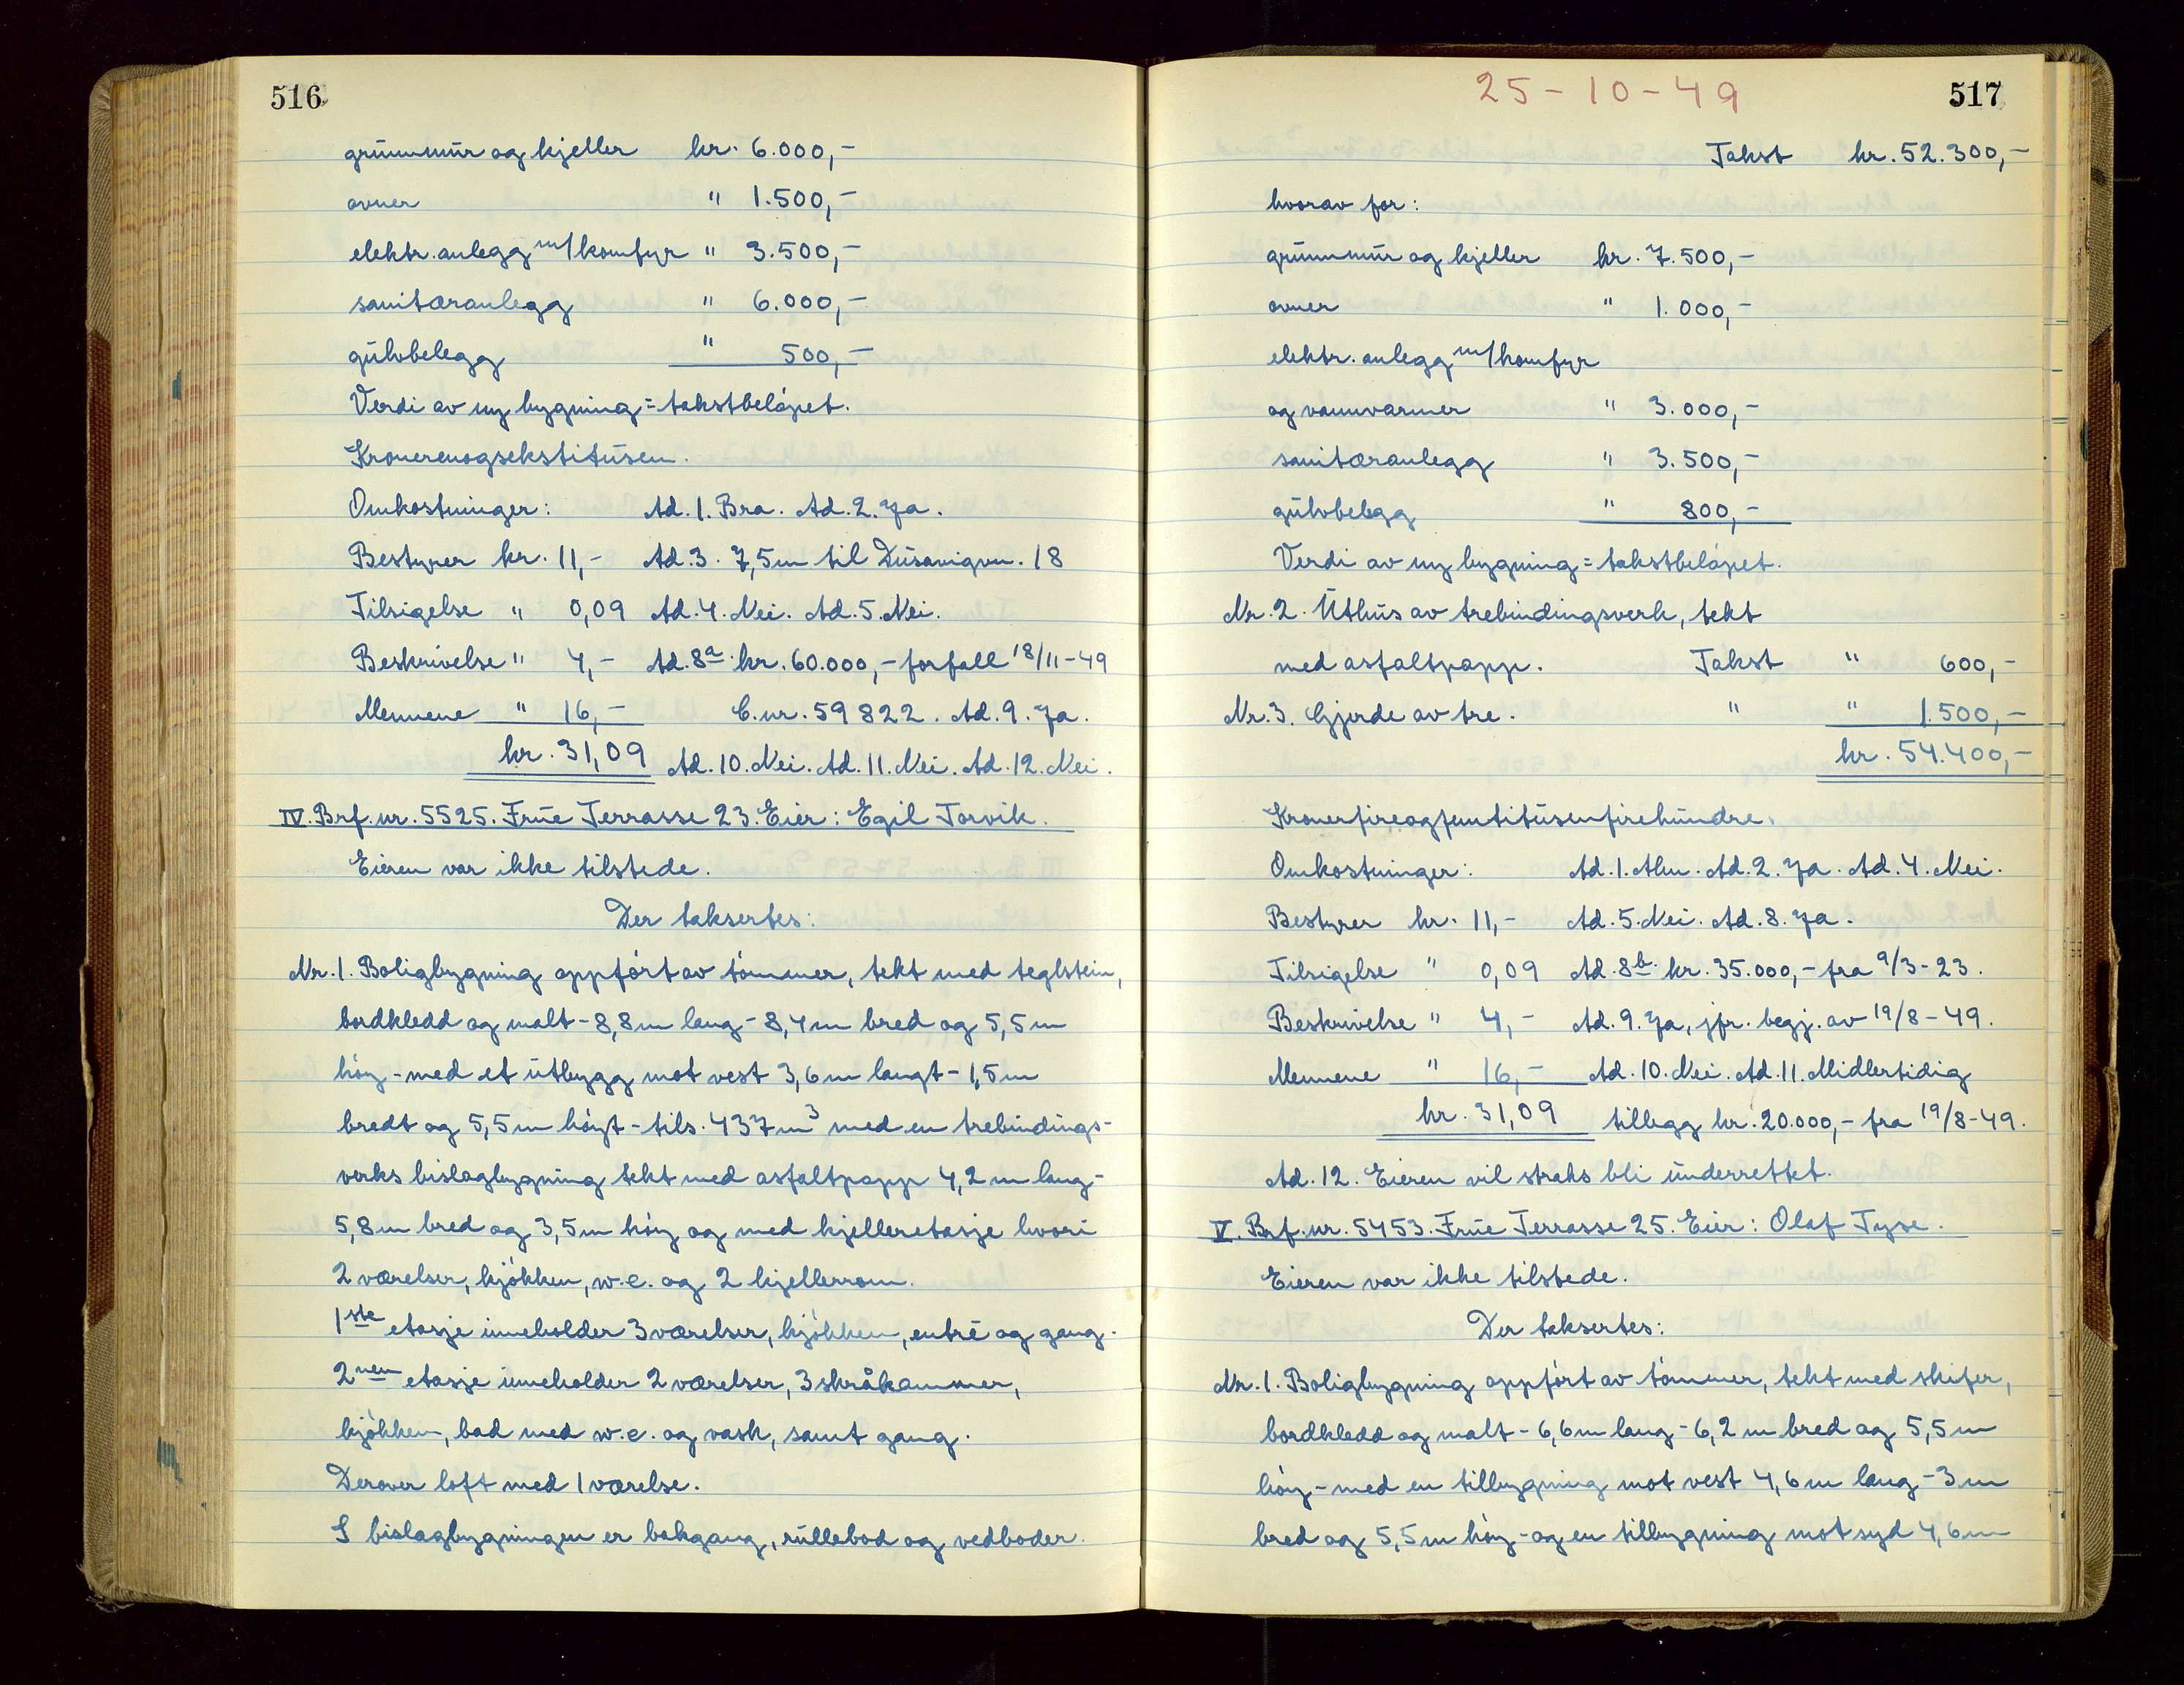 516
grunnmur og kjeller kr. 6.000,-
ovner " 1.500,-
elektr. anlegg m/komfyr " 3.500,-
sanitæranlegg " 6.000,-
gulvbelegg " 500,-
Verdi av ny bygning = takstbeløpet.
Omkostninger: Ad. 1. Bra. Ad. 2. Ja.
Bestyrer kr. 11,- Ad. 3. 7,5m til Dusavigvn. 18
Tilsigelse " 0,09 Ad. 4. Nei. Ad. 5. Nei.
Beskrivelse " 4,- Ad. 8a. kr. 60.000,- forfall 18/11-49
Mennene " 16,- C.nr. 59822. Ad. 9. Ja.
kr. 31,09 Ad. 10. Nei. Ad. 11. Nei. Ad. 12. Nei.
IV. Brf. nr. 5525. Frue Terrasse 23. Eier: Egil Torvik.
Eieren var ikke tilstede.
Der taksertes:
Nr. 1. Boligbygning oppført av tømmer, tekt med teglstein,
bordkledd og malt - 8,8m lang - 8,4m bred og 5,5m
høy - med et utbygg mot vest 3,6m langt - 1,5m
bredt og 5,5m høyt - tils. 437m³ med en trebindings-
verks bislagbygning tekt med asfaltpapp 4,2m lang -
5,8m bred og 3,5m høy og med kjelleretasje hvori
2 værelser, kjøkken, w.c. og 2 kjellerrom.
1ste etasje inneholder 3 værelser, kjøkken, entré og gang.
2nen etasje inneholder 2 værelser, 3 skråkammer,
kjøkken, bad med w.c. og vask, samt gang.
Derover loft med 1 værelse.
I bislagbygningen er bakgang, rullebod og vedboder.
25-10-49
517
Takst kr. 52.300,-
hvorav for:
grunnmur og kjeller kr. 7.500,-
ovner " 1.000,-
elektr. anlegg m/komfyr
og vannvarmer " 3.000,-
sanitæranlegg " 3.500,-
gulvbelegg " 800,-
Verdi av ny bygning = takstbeløpet.
Nr. 2. Uthus av trebindingsverk, tekt
med asfaltpapp. Takst " 600,-
Nr. 3. Gjerde av tre. " " 1.500,-
kr. 54.400,-
Kronerfireogfemtitusenfirehundre.
Omkostninger: Ad. 1. Alm. Ad. 2. Ja. Ad. 4. Nei.
Bestyrer kr. 11,- Ad. 5. Nei. Ad. 8. Ja.
Tilsigelse " 0,09 Ad. 8b. kr. 35.000,- fra 9/3-23.
Beskrivelse " 4,- Ad. 9. Ja, jfr. begj. av 19/8-49.
Mennene " 16,- Ad. 10. Nei. Ad. 11. Midlertidig
kr. 31,09 tillegg kr. 20.000,- fra 19/8-49.
Ad. 12. Eieren vil straks bli underrettet.
V. Brf. nr. 5453. Frue Terrasse 25. Eier: Olaf Tyse.
Eieren var ikke tilstede.
Der taksertes:
Nr. 1. Boligbygning oppført av tømmer, tekt med skifer,
bordkledd og malt - 6,6m lang - 6,2m bred og 5,5m
høy - med en tilbygning mot vest 4,6m lang - 3m
bred og 5,5m høy - og en tilbygning mot syd 4,6m